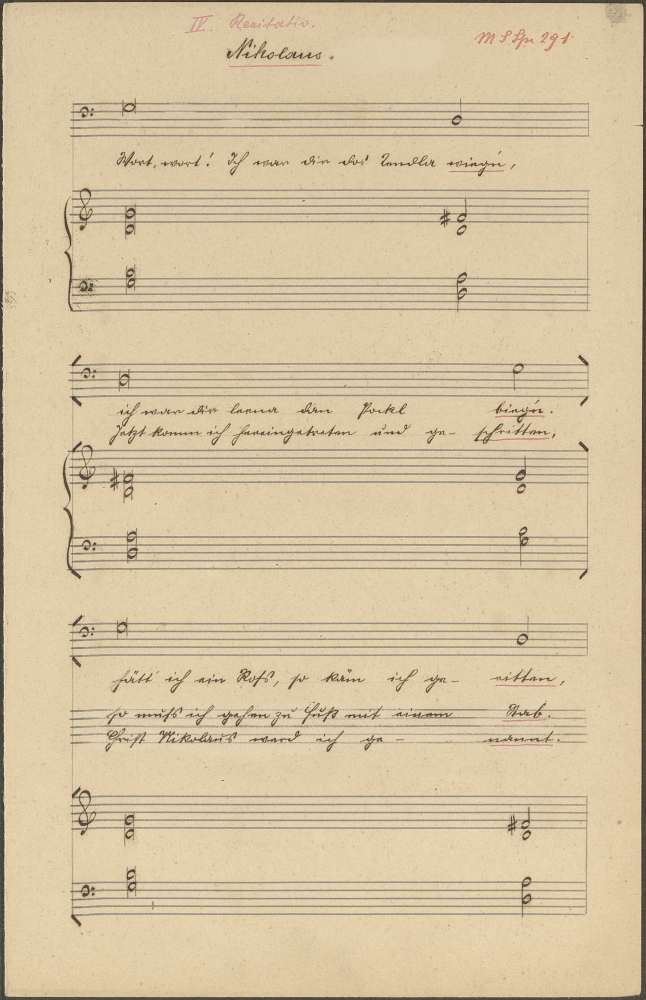 IV. Recitativ.
Nikolaus.
Wort, wort! Ich war dir das Lendla wiegn,
ich war dir lerna dan Pockl biegn.
Jetzt komm ich hereingetreten und ge- schritten,
hätt ich ein Roß, so käm ich ge- ritten,
so muß ich gehen zu Fuß mit einem Stab.
Christ Nikolaus werd ich ge- nannt.